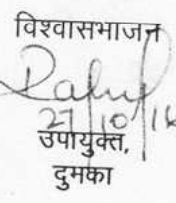 विश्वासभाजन
Rahul
27/10/16
उपायुक्त,
दुमका